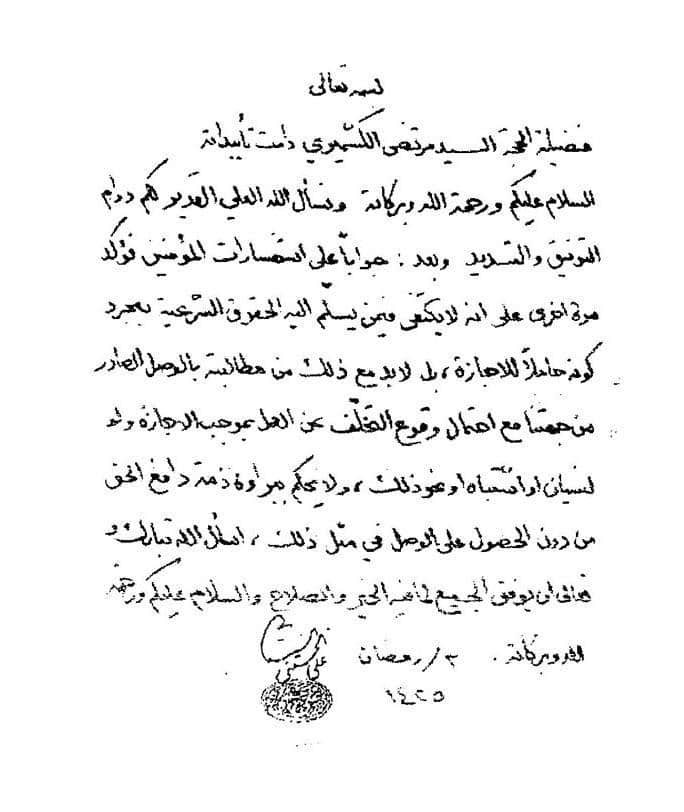 بسمه تعالى
فضيلة الحجة السيد مرتضى الكشميري دامت تأييداته
السلام عليكم ورحمة الله وبركاته ونسأل الله العلي القدير لكم دوام
التوفيق والتسديد وبعد : جواباً على استفسارات المؤمنين نؤكد
مرة اخرى على انه لا يكتفى فيمن يسلّم اليه الحقوق الشرعية بمجرد
كونه حاملاً للاجازة ، بل لابد مع ذلك من مطالبته بالوصل الصادر
من جهتنا مع احتمال وقوع التخلّف عن العمل بموجب الاجازة ولو
لنسيان او اشتباه او نحو ذلك ، ولا يحكم ببراءة ذمة دافع الحق
من دون الحصول على الوصل في مثل ذلك ، اسأل الله تبارك و
تعالى ان يوفق الجميع لما فيه الخير والصلاح والسلام عليكم ورحمة
الله وبركاته . ٣/ رمضان
١٤٢٥
علي الحسيني